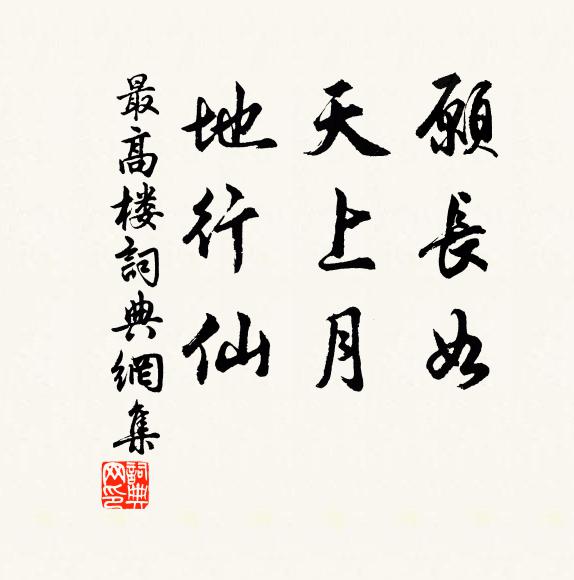 願長如
天上月
地行仙
最高楼詞典網集
詞典
网印